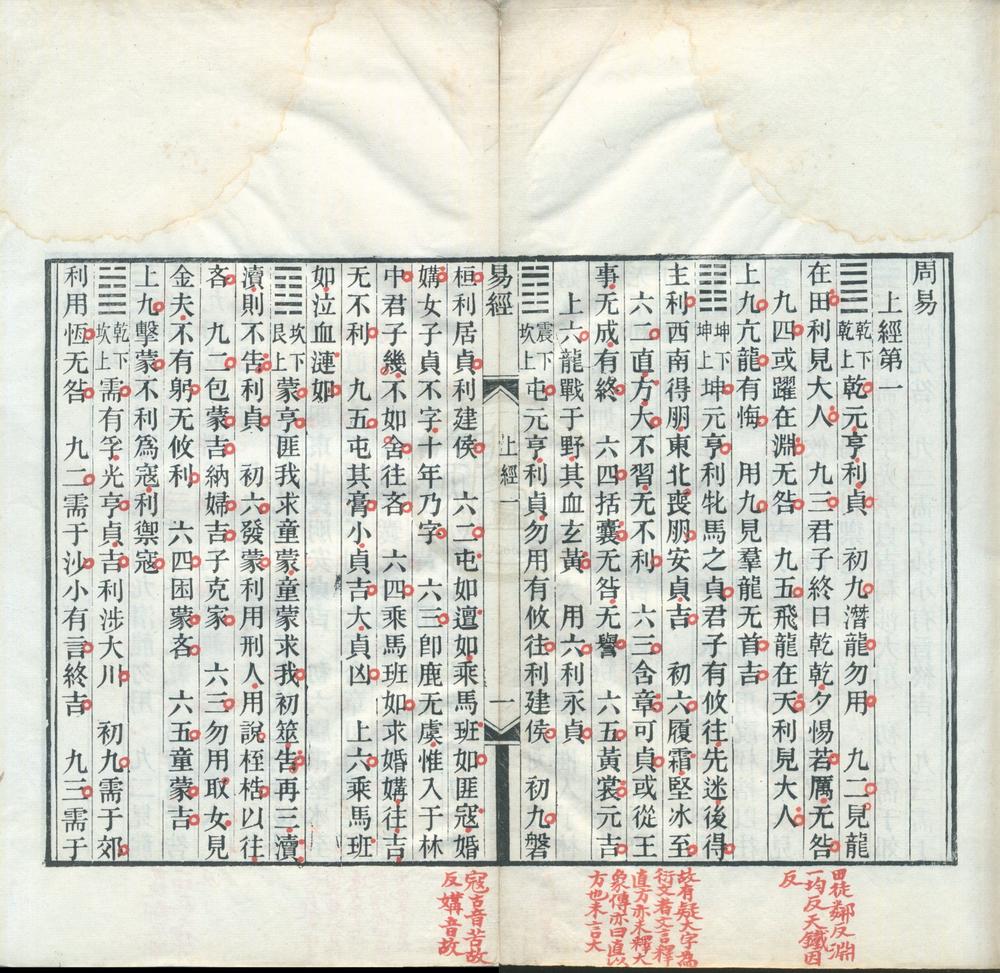 周易
上經第一
䷀乾下乾上乾元亨利貞　初九潛龍勿用　九二見龍
在田利見大人　九三君子終日乾乾夕惕若厲无咎
九四或躍在淵无咎　九五飛龍在天利見大人
上九亢龍有悔　用九見羣龍无首吉
䷁坤下坤上坤元亨利牝馬之貞君子有攸往先迷後得
主利西南得朋東北喪朋安貞吉　初六履霜堅冰至
六二直方大不習无不利　六三含章可貞或從王
事无成有終　六四括囊无咎无譽　六五黃裳元吉
上六龍戰于野其血玄黃　用六利永貞
䷂震下坎上屯元亨利貞勿用有攸往利建侯　初九磐
易經　上經一　一
桓利居貞利建侯　六二屯如邅如乘馬班如匪寇婚
媾女子貞不字十年乃字　六三卽鹿无虞惟入于林
中君子幾不如舍往吝　六四乘馬班如求婚媾往吉
无不利　九五屯其膏小貞吉大貞凶　上六乘馬班
如泣血漣如
䷃坎下艮上蒙亨匪我求童蒙童蒙求我初筮吿再三瀆
瀆則不吿利貞　初六發蒙利用刑人用說桎梏以往
吝　九二包蒙吉納婦吉子克家　六三勿用取女見
金夫不有躬无攸利　六四困蒙吝　六五童蒙吉
上九擊蒙不利爲寇利禦寇
䷄乾下坎上需有孚光亨貞吉利涉大川　初九需于郊
利用恆无咎　九二需于沙小有言終吉　九三需于
田徒鄰反淵
一均反天鐵因
反
故有疑大字為
衍文者文言釋
直方亦未釋大
象傳亦曰直以
方也未言大
寇古音苦故
反媾音故